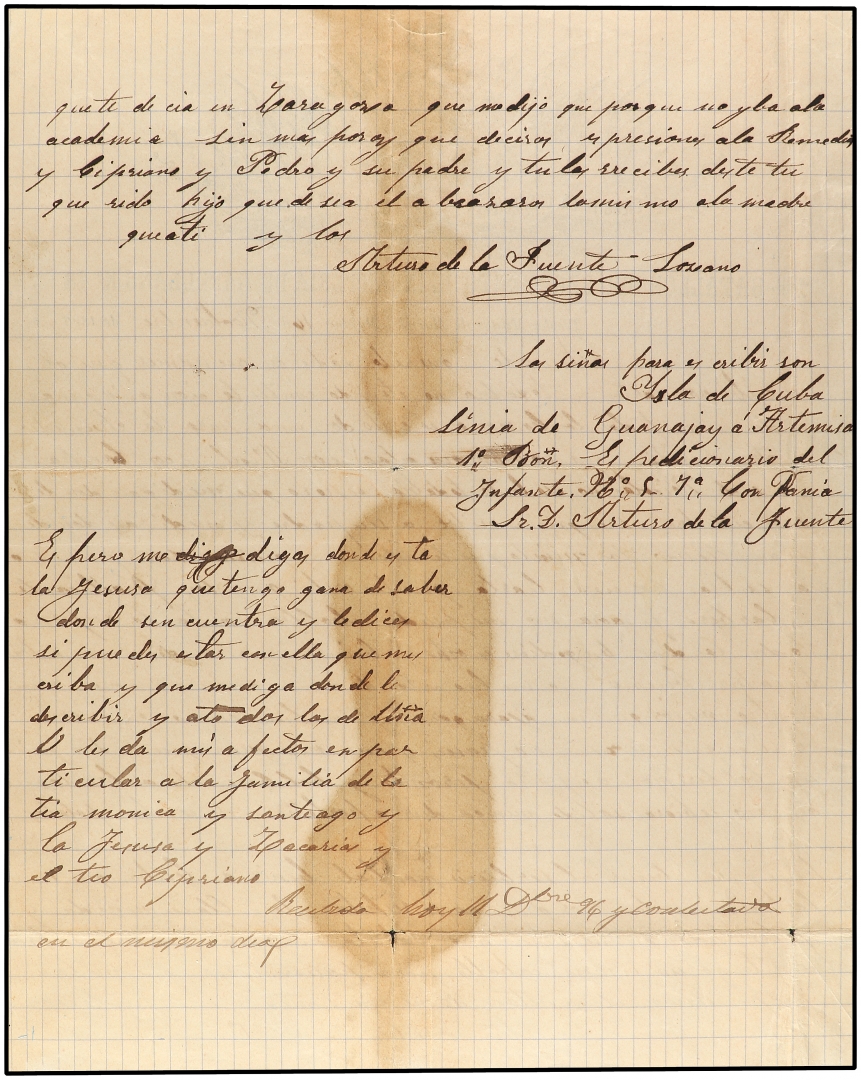 que te de cia en Zaragosa que me dijo que por que no yba ala
academia sin mas por oy que deciros espresiones ala Remedios
y Cipriano y Pedro y su padre y tu las rrecibes deste tu
que rido hijo que de sea el a baazaros lo mis mo ala madre
que ati y los
Arturo de la Fuente - Lozano
Las siñas para es cribir son
Ysla de Cuba
Linia de Guanajay á Artemisa
1º Bon. Es pedicionario del
Infante, Nº 5 7ª Con Pania
Sr. D. Arturo de la Fuente
Es pero me digas donde es ta
la Jesusa que tengo gana de saber
donde sen cuentra y le dices
si puedes estar con ella que mes
criba y que me diga donde le
des cribir y ato dos los de
U les da mis a fectos en par
ti cular a la familia de la
tia monica y santiago y
la Jesusa y Zacarias y
el tio Cipriano
Recibida hoy 11 Dbre 96 y contestada
en el mismo dia